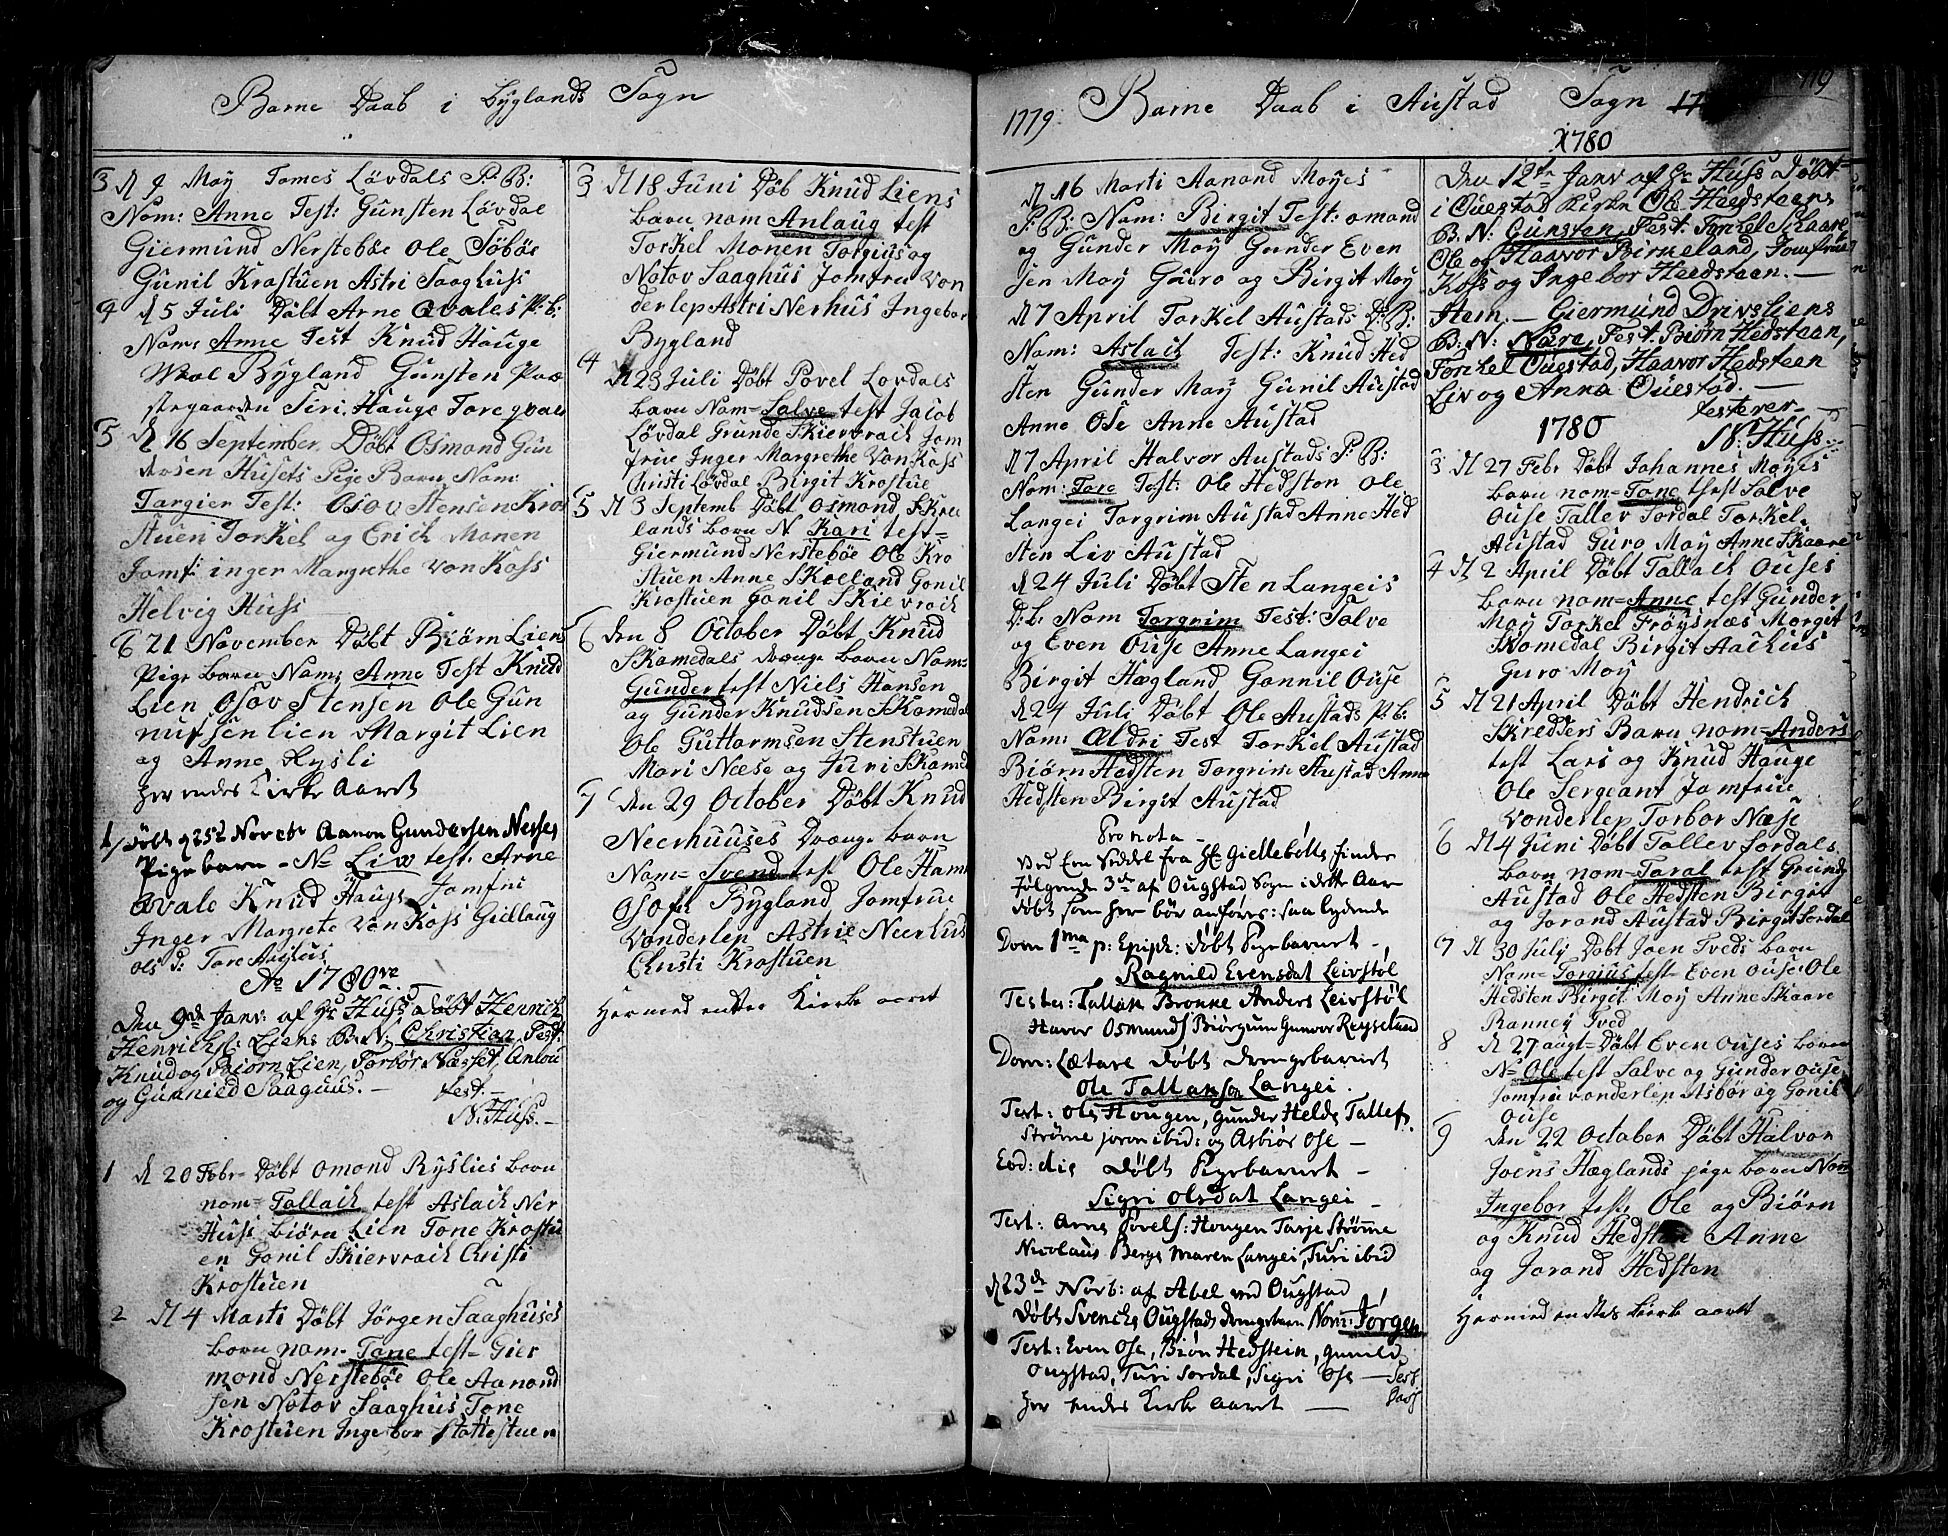 Barne Daab i Byglands Sogn
3 d 9 Moy Tomes Lövdals P: B:
Nom: Anne Test: Gunsten Lövdal
Giermund Nerstebøe Ole Töbös
Gunil Krastuen Astri Saaghuss
4 d 5 Juli Døbt Arne Qvales P: b:
Nom: Anne Test Knud Hauge
Bygland Gunsten Præ
stegaarden Siri Hauge Tore qvale
5 d 16 September Døbt Osmond Gun
dersen Husets Pige Barn Nom:
Targier Test: Osov Stensen Kro
stuen Torkel og Erich Monen
Jomf: inger Margrethe von Koss
Helvig Huss
6 21 November Døbt Biørn Liens
Pige barn Nom: Anne Test Knud
Lien Osov Stensen Ole Gun
nufsen lien Margit Lien
og Anne Rysli
her endes Kirke Aaret
1/ døbt d 25de Novebr Aanon Gundersen Neses
Pigebarn - N: Liv test: Arne
Qvale Knud Hauge Jomfru
Inger Margrete von Koss Gidlaug
ols d: Tore
Ao 1780ve
Den 9de Janv: af Hr Huss, døbt Henrich
Henrichs: Liens B: N: Christian, Test:
Knud og Biorn Lien, Torbor Næsset, Anlou
og Gunnild Saaguus. -
test: -
N: Huss. -
1 d 20 Febr= Døbt Omond Ryslies barn
nom= Tallach test Aslach Ner
Huss biørn Lien Tone Krostu
en Gonil Skiervrach Christi
Krostuen
2 d 4 Marti Døbt Jörgen Saaghuses
barn nom= Tone test= Gier
mond Nerstebøe Ole Aanond
sen Notov Saaghus Tone
Krostuen Ingebor Stottestuen
3 d 18 Juni Døb Knud Liens
barn nom Anlaug test
Torkel Monen Torgius og
Notov Saaghus Jomfru von
derlep Astri Nerhus Ingebor
Bygland
4
d 23 Juli Døbt Povel Lovdals
barn Nom= Salve test Jacob
Lövdal Grunde Skiervrach Jom
frue Inger Margrethe von Koss
Christi Lövdal Birgit Krostue
5 d 3 Septemb Døbt Osmond Skree
lands barn N Kari test=
Giermund Nerstebøe Ole Kro
stuen Anne Skreeland Gonil
Krostuen Gonil Skievrach
6 den 8 October Døbt Knud
Skamedals drænge barn Nom=
Gunder test Niels Hansen
og Gunder Knudsen Skamedal
Ole Guttormsen Stenstuen
Mari Næse og Juri Skamed
7 den 29 October Døbt Knud
Neerhuuses Drænge barn
Nom= Svend test Ole Ham
Osofn Bygland Jomfrue
Vonderlep Astrie Neerhus
Christi Krostuen
Hermed ender Kirke aaret
1779 Barne Daab i Austad Sogn 17 119
1780
d 16 Marti Aanond Moyes
P: B: Nom: Birgit Test: omond
og Gunder Moy Gunder Even
sen Moy Guuro og Birgit Moy
d 7 April Torkel Austads D: B:
Nom: Aslach Test: Knud Hed
sten Gunder Moy Gunil Austad
Anne Ose Anne Austad
d 7 April Halvor Austads P: B:
Nom: Tore Test: Ole Hedsten Ole
Langei Torgrim Austad Anne Hed
sten Liv Austad
d 24 Juli Døbt Sten Langeis
D: b: Nom Torgrim Test: Salve
og Even Ouse Anne Langei
Birgit Hægland Gonnil Ouse
d 24 Juli Døbt Ole Austads P: b:
Nom: Aldri Test Torkel Austad
Biørn Hedsten Torgrim Austad Anne
Hedsten Birgit Austad
Pro nota -
Ved Een Seddel fra Hr Giellebølts findes
følgende 3de af Ougstad Sogn i dette Aar
døbt som her bør anføres: saa lydende
Dom 1ma p: Epiph: døbt Pigebarnet -
Ragnild Evensdat Leivstøl
Testes: Tallak Bronne Anders Leivstøl
Havor Osmunds Biørgum Gunvor Reyseland
Dom: Lætare døbt drengebarnet
Ole Tallakson Langei.
Test: Ole Hougen, Gunder Helde, Tallefs
Strømme joron ibid: og Asbiør Ose -
Eod: die døbt Pigebarnet -
Sigri Olsdat Langei -
Test: Arne Sovels: Hougen Tarje Strømme
Nicolaus Berge Maren Langei, Turi ibid
d 23de Novb: af Abel ved Ougstad
døbt Svenche Ougstads drengebarn Nom: Jorgen
Test: Even Ose, Biøn Hedstein, Gunild
Ougstad, Turi Sordal, Sigri Ose -
her endes Kirke Aaret -
Den 12te Janv af Hr Huss Døbt
i Ouestad Kirke Ole Heedsteens
B: N: Gunsten, Test: Torkel Skaare
Ole og Haavor Birkeland, Jomfrue
Koss og Ingebor Heedsteen. -
Item. - Giermund Drivsliens
B: N: Nare, Test: Biørn Hedsteen,
Torkel Ouestad, Haavor Hedsteen
Liv og Anna Ouestad. -
testerer -
1780 N: Huss.
3 d 27 Febr Døbt Johannes Moyes
barn nom= Tone test Salve
Ouse Tallev Sordal Torkel
Austad Guro Moy Anne Skaare
4 d 2 April Døbt Tallach Ouses
barn nom= Anne test Gunder
Moy Torkel Fröysnæs Margit
Skomedal Birgit Aachus
Guro Moy
5 d 21 April Døbt Hendrich
Skreddes Barn nom= Anders
test Lars og Knud Hauge
Ole Sergeant Jomfrue
Vonderlep Torbor Næse
6 d 4 Juni Døbt Tallev Sordals
barn nom= Taral test Greundy
Austad Ole Hedsten Birgit
og Jorand Austad Birgit Sordal
7 d 30 July Døbt Joen Tveds barn
Nom= Torgius test= Even Ouse Ole
Hedsten Birgit Moy Anne Skaare
Ranney Tved
8 d 27 augt= Døbt Even Ouses barn
N= Ole test Salve og Gunder Ouse
Jomfru vonderlep Asbör og Gonil
Ouse
9 den 22 October Døbt Halvor
Joens Hæglands pige barn Nom
Ingebor test: Ole og Biörn
og Knud Hedsten Anne
og Jorand Hedsten
Hermed endes kirke aaret